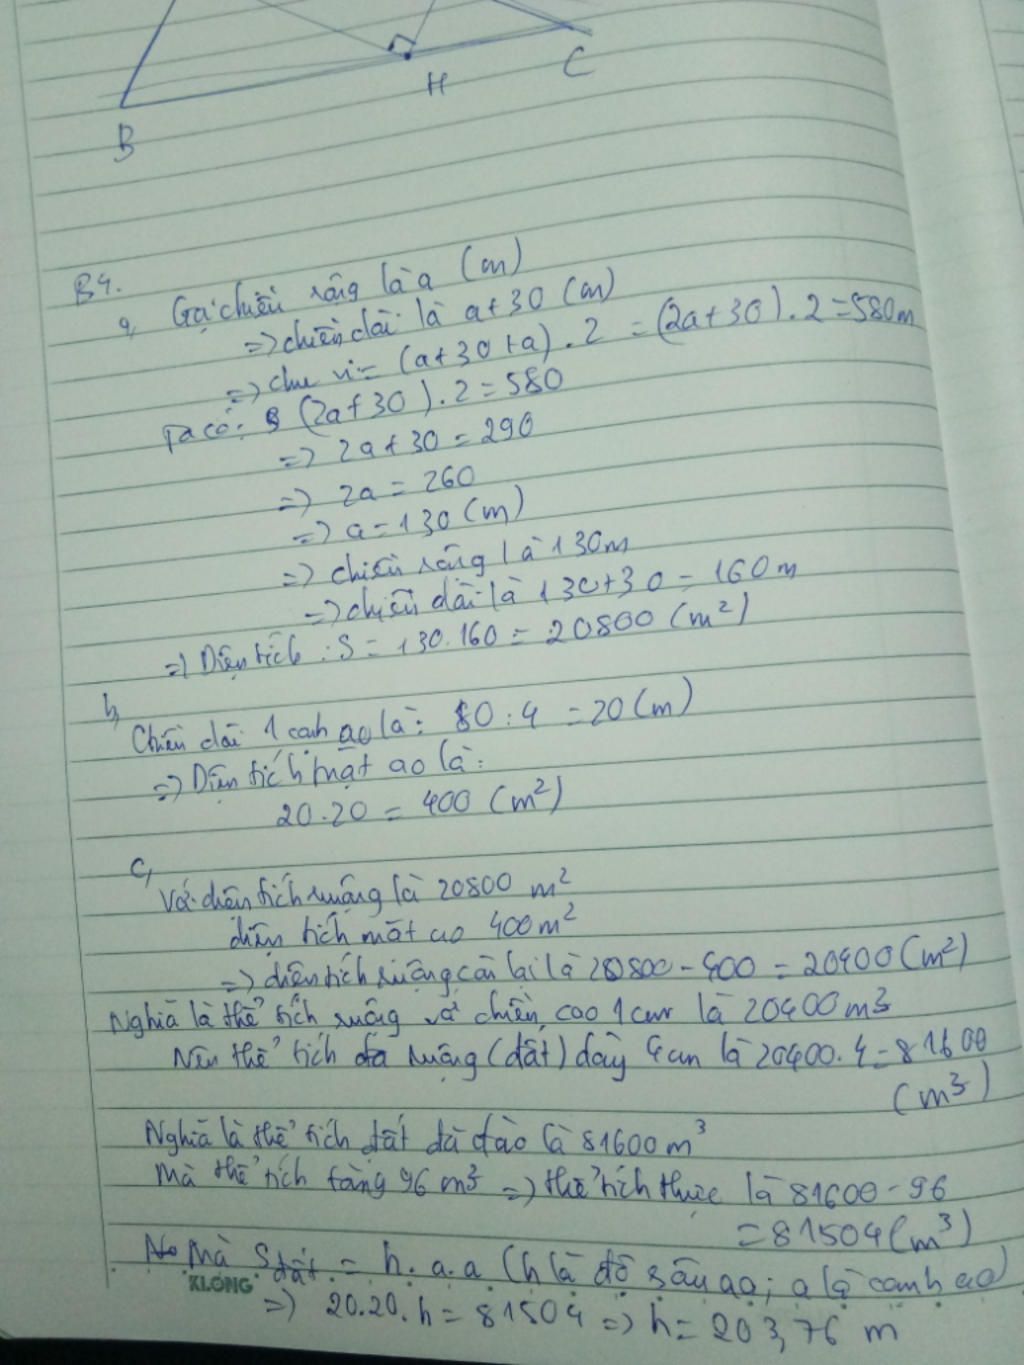 C
H
B
B4.
a, Gọi chiều rộng là a (m)
=> chiều dài là a+30 (m)
=> chu vi = (a+30+a).2 = (2a+30).2=580m
Ta có: (2a+30).2=580
=> 2a+30=290
=> 2a=260
=> a=130(m)
=> chiều rộng là 130m
=> chiều dài là 130+30=160m
=> Diện tích: S=130.160=20800(m²)
b,
Chiều dài 1 cạnh ao là: 80:4=20(m)
=> Diện tích mặt ao là:
20.20=400(m²)
c,
Với diện tích ruộng là 20800 m²
diện tích mặt ao 400m²
=> diện tích ruộng còn lại là 20800-400=20400(m²)
Nghĩa là thể tích ruộng với chiều cao 1cm là 20400m³
Nên thể tích ruộng (đất) dày 4cm là 20400.4=81600
(m³)
Nghĩa là thể tích đất đã đào là 81600m³
Mà thể tích tăng 96m³ => thể tích thực là 81600-96
=81504(m³)
Mà S đất = h.a.a (h là độ sâu ao; a là cạnh ao)
KLONG
=> 20.20.h=81504 => h=203,76 m